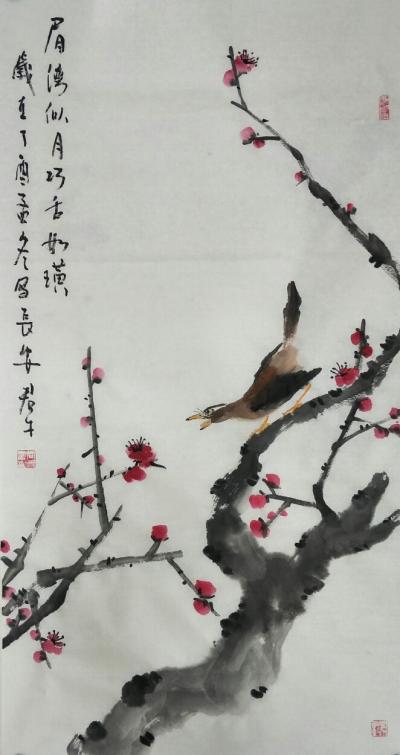 眉湾似月巧舌如璜
歲在丁酉孟冬写長安君午